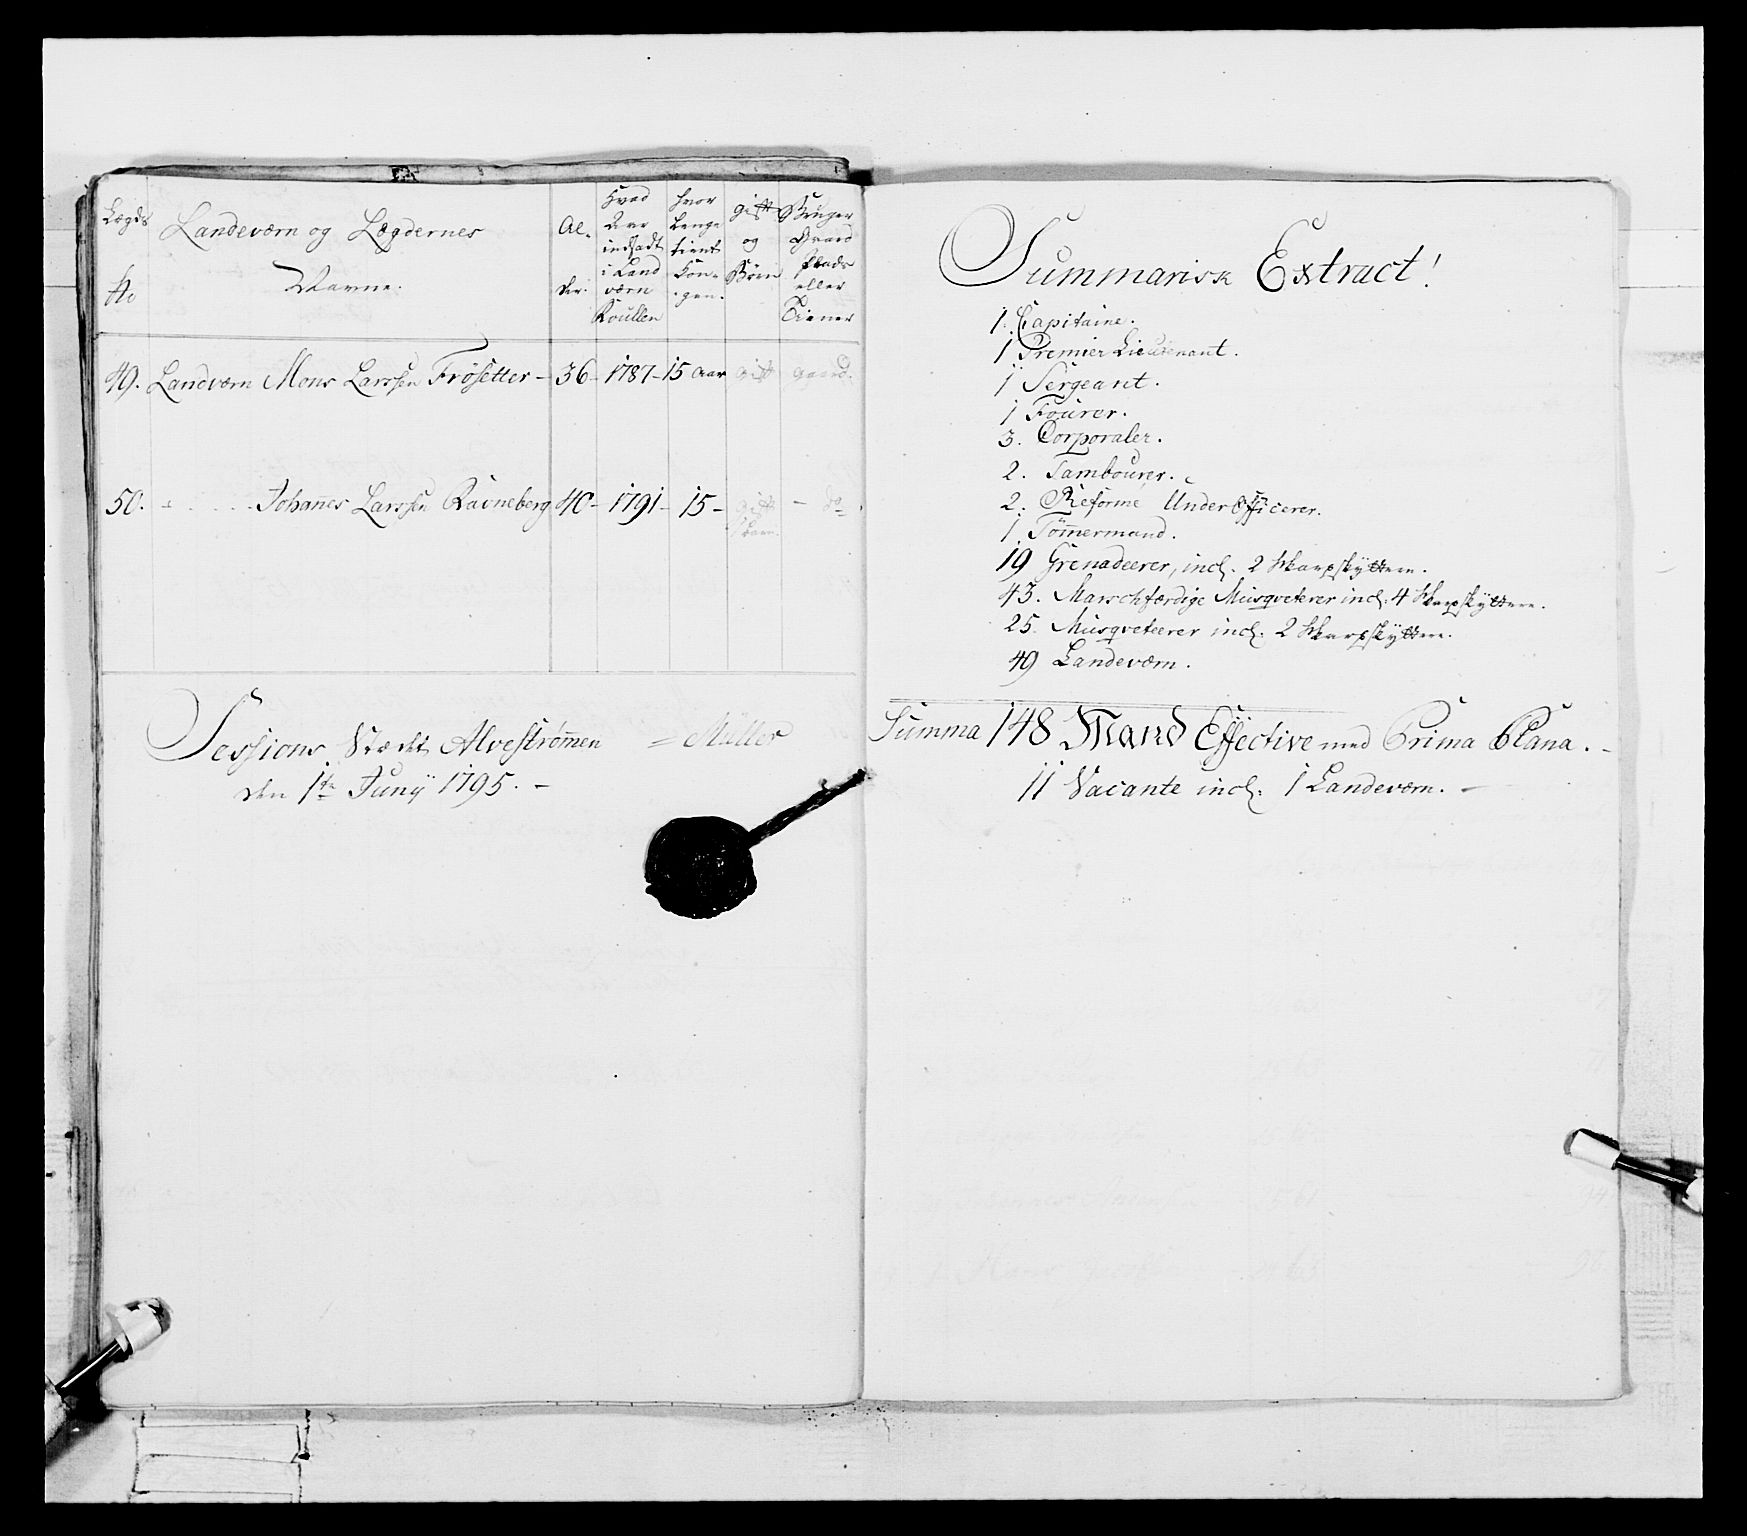 Lægds
No
Landeværn og Lægdernes
Navne.
Al-
der.
Hvad
Aar
indsadt
i Land
værn
Roullen
hvor
Længe
tient
Kon-
gen.
gift
og
Børn
Bruger
Gaard
Plads
eller
Tiener
49. Landværn Mons Larssen Frøsetter - 36 - 1787 - 15 Aar gift gaard.
50. Johanes Larssen Ravneberg 40 - 1791 - 15 - gift - do
1 barn.
Sessions Stædet Alvestrømen
den 1te Junÿ 1795. -
Müller
Summarisk Extract!
1. Capitaine.
1 Premier Lieutenant.
1 Sergeant.
1 Fourer.
3. Corporaler.
2. Tambourer.
2. Reforme Under Officerer.
1 Tømermand.
19 Grenadeerer, incl. 2 Skarpskÿttere.
43. Marschfærdige Musqveterer incl. 4 Skarpskÿttere.
25. Musqveteerer incl. 2 Skarpskÿttere.
49 Landeværn.
Summa 148 Mand Effective med Prima Plana. -
11 Vacante incl. 1 Landeværn. -